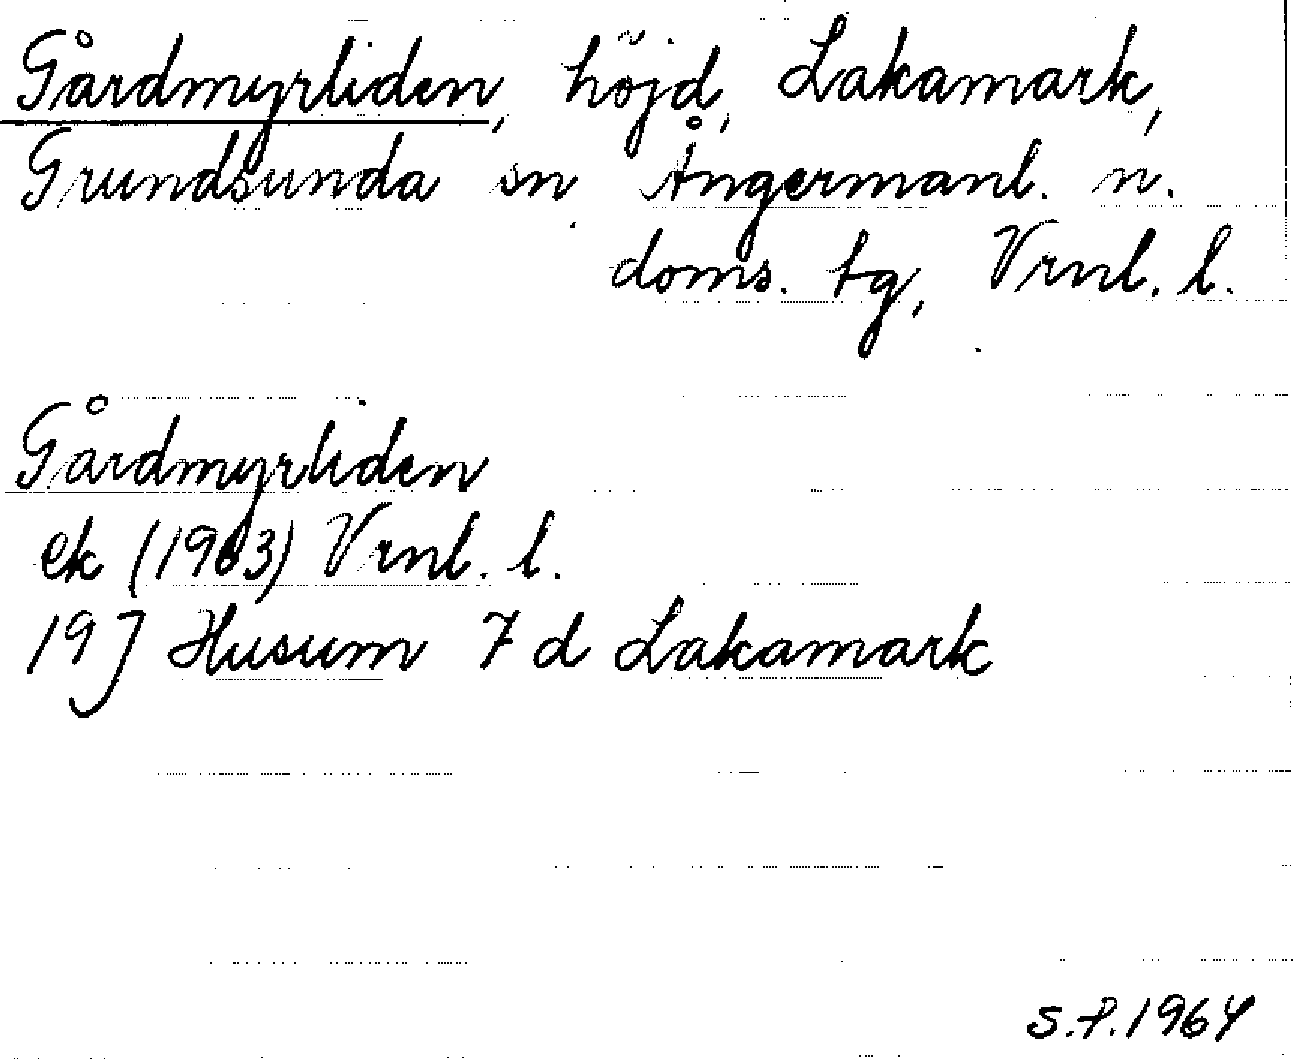 Gårdmyrliden, höjd, Lakamark,
Grundsunda sn Ångermanl. n.
doms. tg, Vrnl. l.
Gårdmyrliden
ek (1963) Vrnl. l.
19 J Husum 7 d Lakamark
S.P. 1964